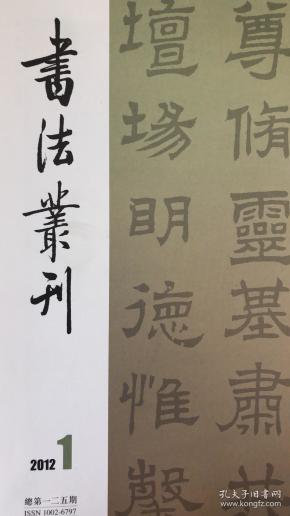 書法叢刊
2012 1
總第一二五期
ISSN 1002-6797
尊脩靈基肅共
壇場明德惟馨
孔夫子旧书网